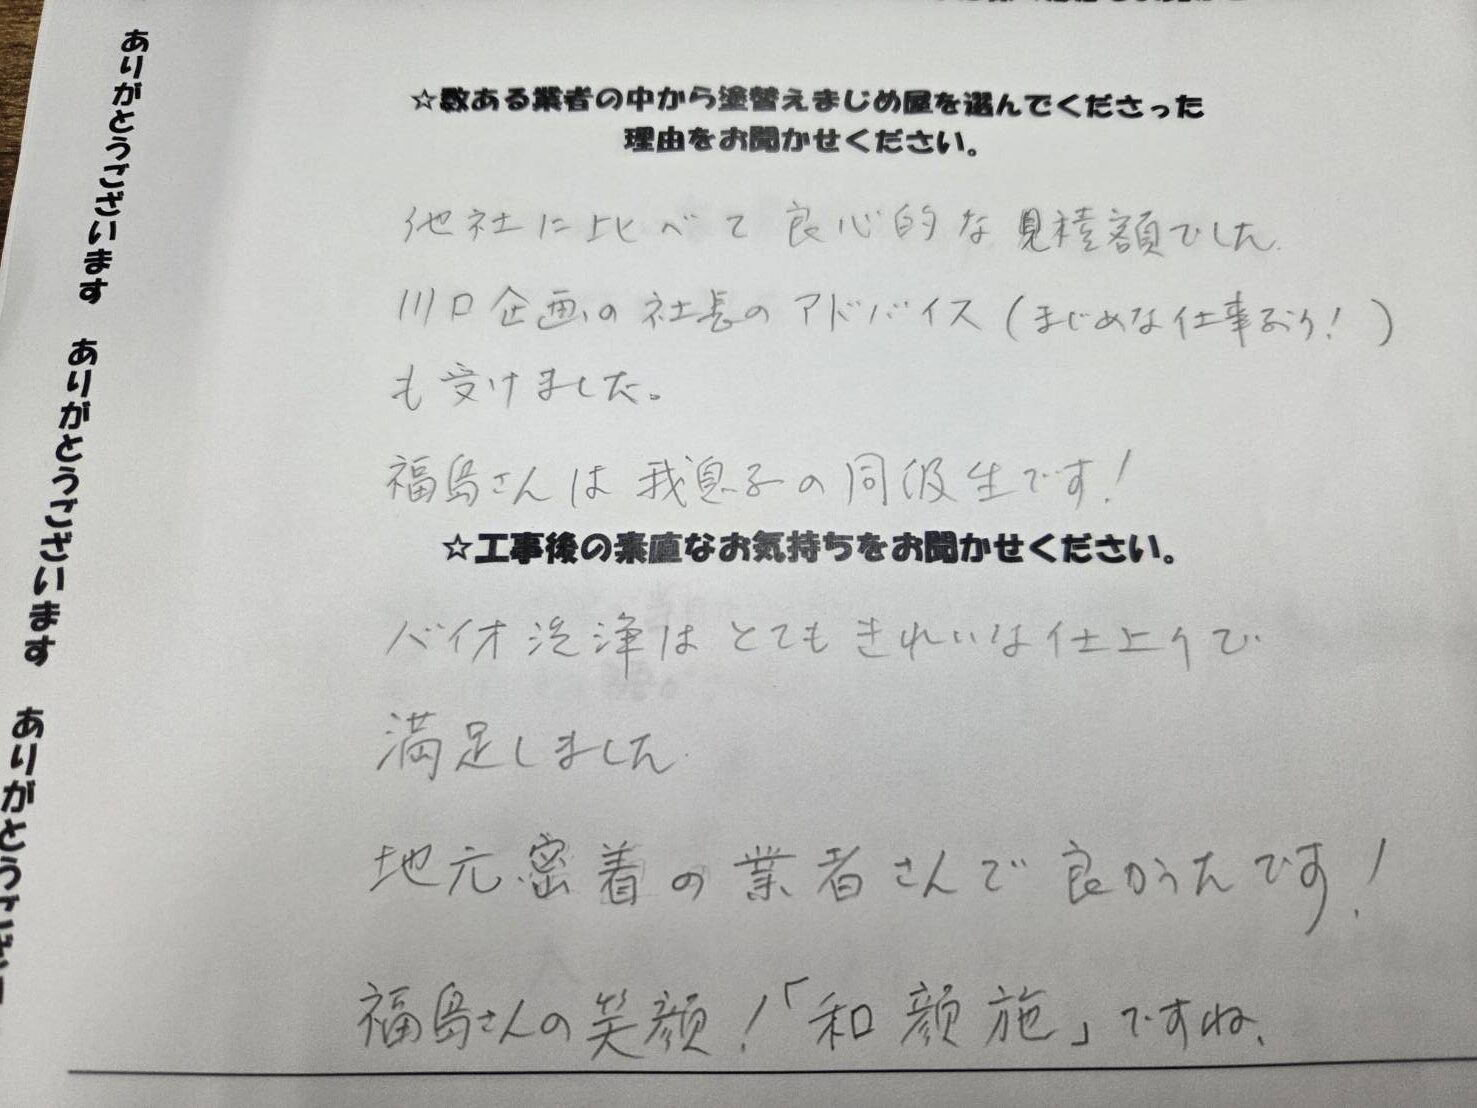 ☆数ある業者の中から塗替えまじめ屋を選んでくださった
理由をお聞かせください。
他社に比べて良心的な見積額でした.
川口企画の社長のアドバイス(まじめな仕事ぶり!)
も受けました。
福島さんは我息子の同級生です!
☆工事後の素直なお気持ちをお聞かせください。
バイオ洗浄はとてもきれいな仕上りで
満足しました.
地元密着の業者さんで良かったです!
福島さんの笑顔!「和顔施」ですね、
ありがとうございます ありがとうございます ありがとうござ